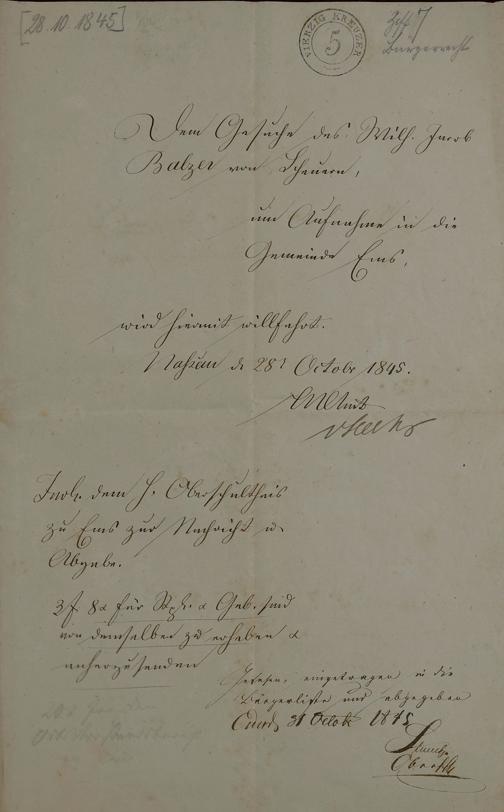 [28.10.1845]
VIERZIG KREUZER
5
Bürgerrecht
Dem Gesuche des Wilh. Jacob
Balzer von Scheuern,
um Aufnahme in die
Gemeinde Ems,
wird hiermit willfahrt.
Nassau d. 28t Octobr 1845.
dem H. Oberschultheis
zu Ems zur Nachricht u.
Abgabe.
3 f 8 x für & Geb. sind
von demselben zu erheben &
anherzusenden
Gelesen, eingetragen in die
Bürgerliste und abgegeben
31 Octobr 1845